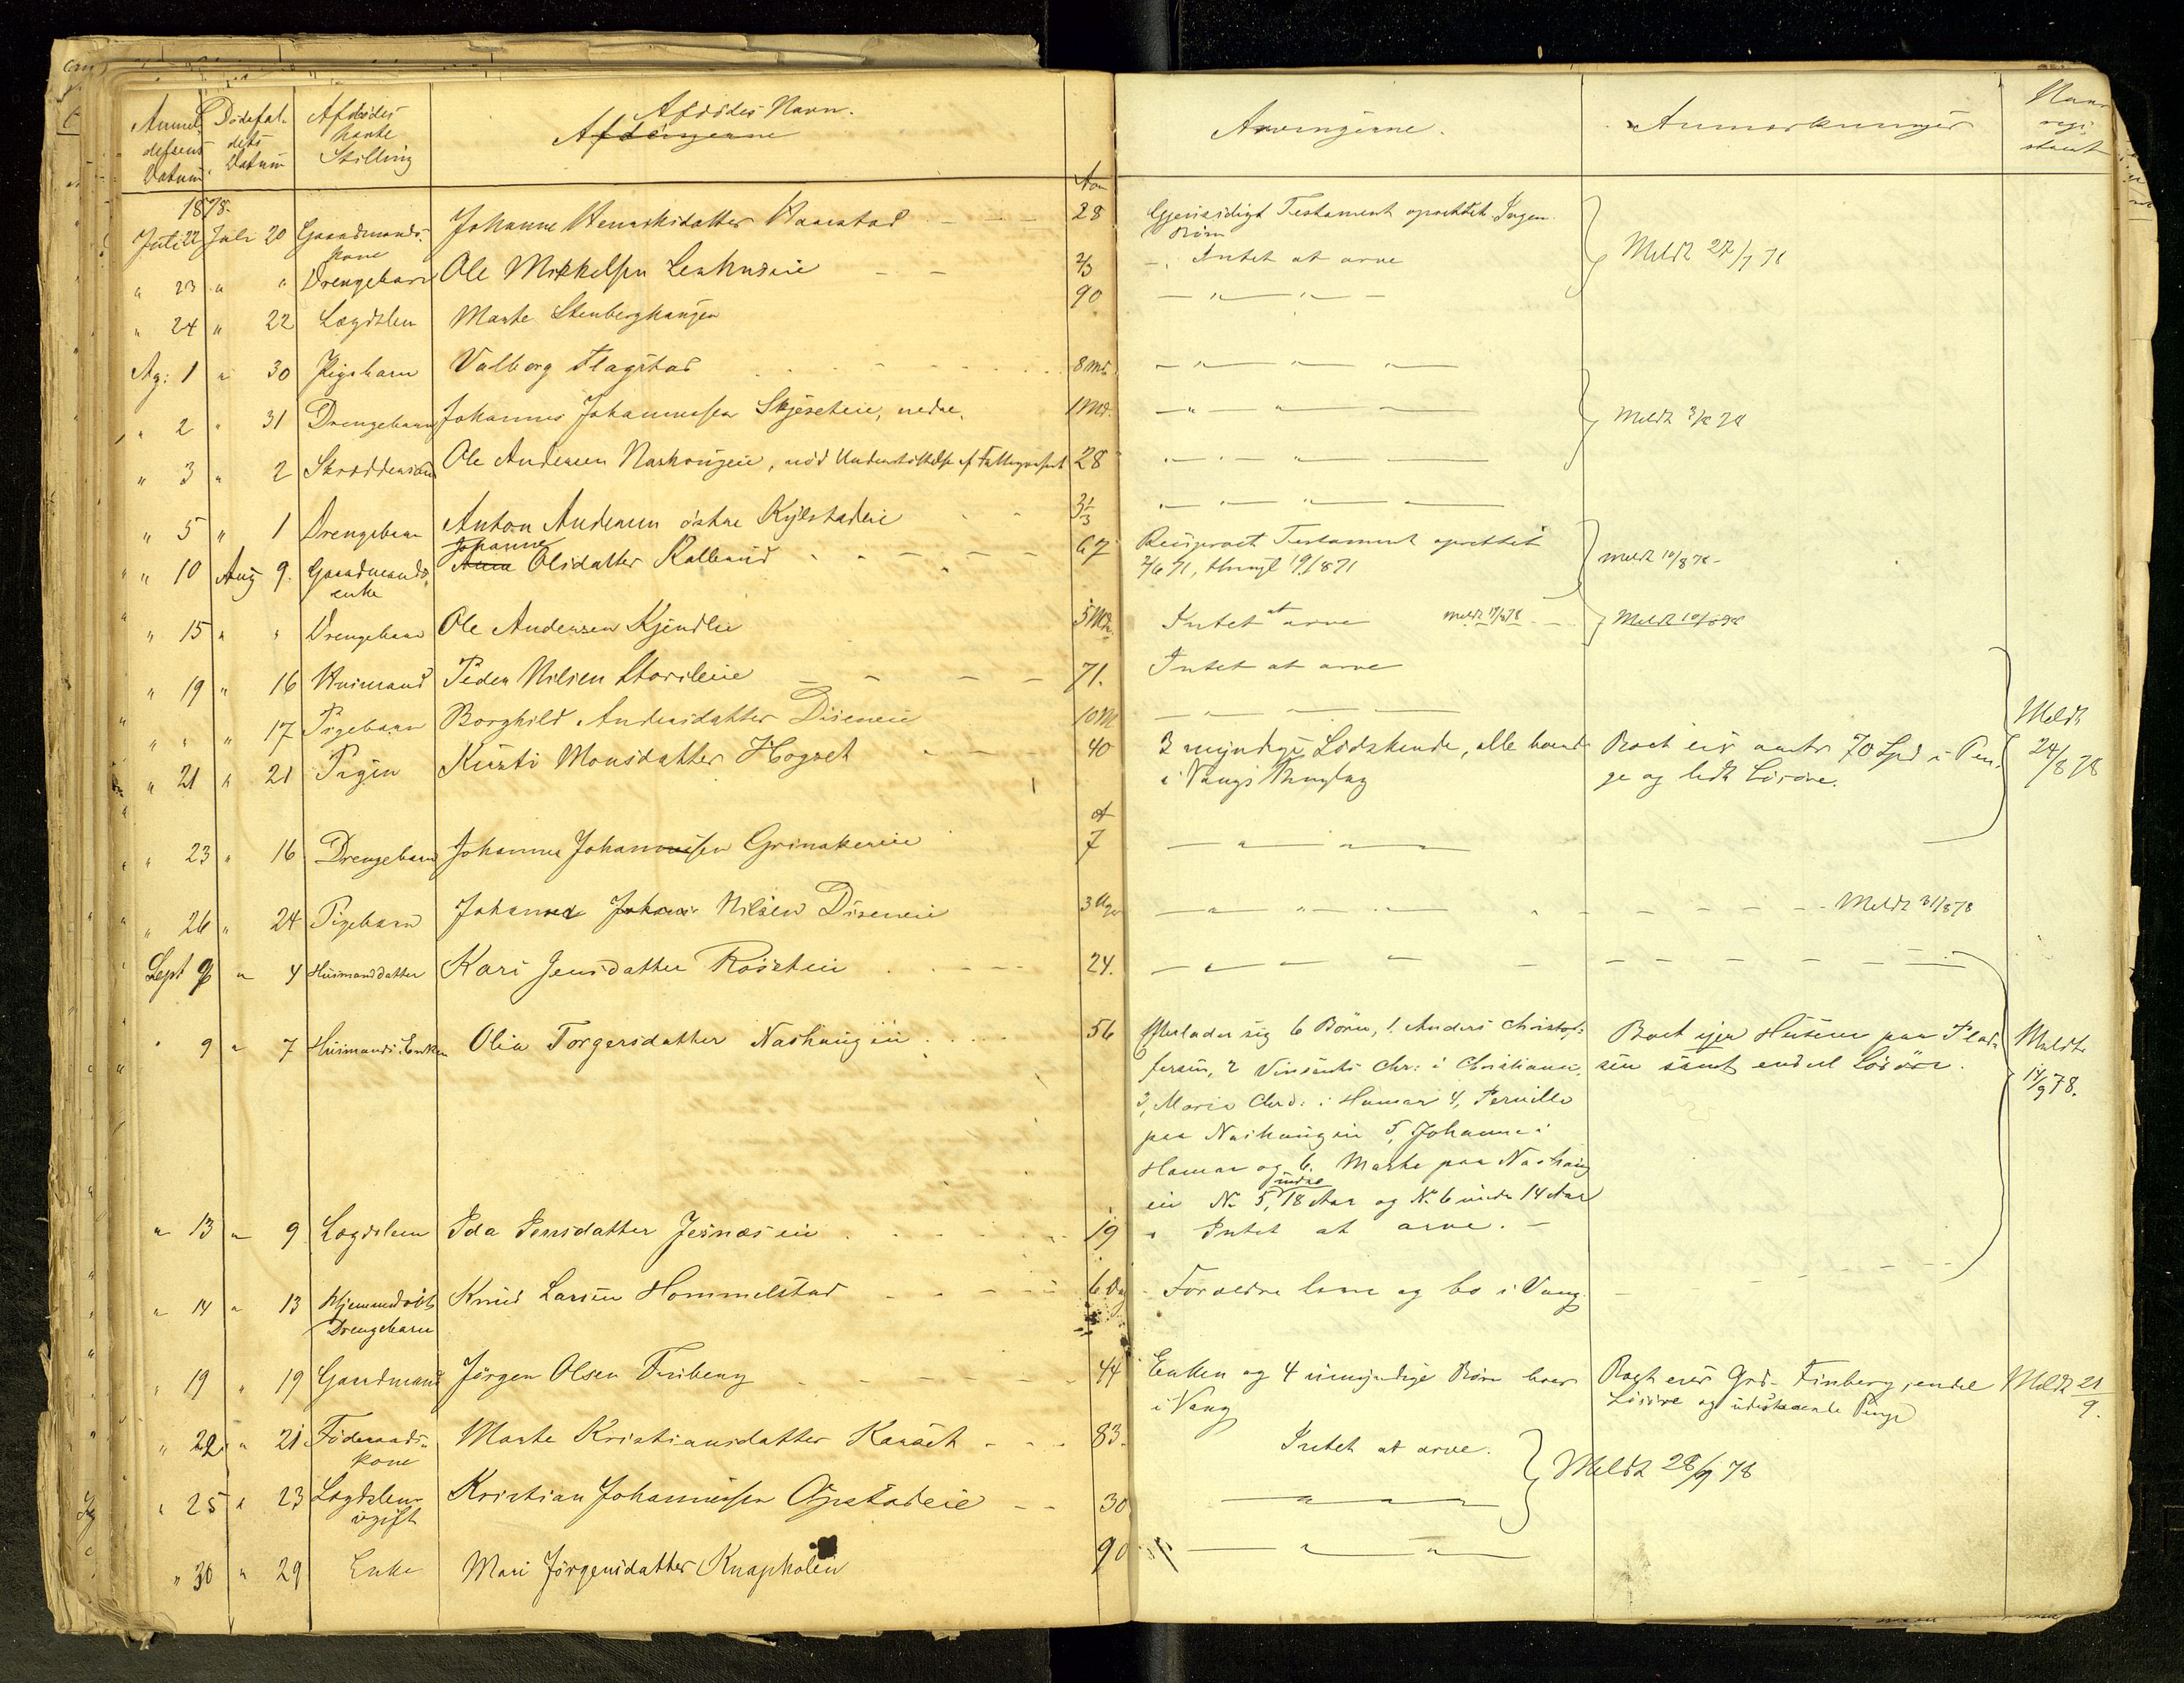 Anmel- Dødsfal- Afdødes Afdødes Navn. Arvingerne. Anmærkninger Naar
delsens dets havte Afdøingerne regi-
Datum Datum Stilling Aar streret
1878.
Juli 22 Juli 20 Gaardmands- Johanne Henriksdatter Haarstad 28 Gjensidigt Testament oprettet. Ingen
kone Børn
" 23 " " Drengebarn Ole Mikkelsen 2/3 Intet at arve Meldt 27/7 78
" 24 " 22 Lægdslem Marte Stenberghaugen 90 — " — " —
Ag: 1 " 30 Pigebarn Valborg Flagstad 8 Md. — " — " —
" 2 " 31 Drengebarn Johannes Johannessen Skjeseteie, nedre. 1 Md. — " — " — Meldt 3/8 78
" 3 " 2 Ole Andersen Nashougeie, nød Understøttelse af Fattigvæsenet 28 — " — " —
" 5 " 1 Drengebarn Anton Andersen østre Kylstadeie 3 1/3 — " — " —
Johanne
" 10 Aug 9. Gaardmands- Anne Olsdatter Kalbaud 67 Reciproct Testament oprettet
enke 71, thingl. 19/8 71 meldt 10/8 78
" 15 " " Drengebarn Ole Andersen Kjendlie 5 Md. Intet at arve meldt 17/8 78 Meldt 10/8 78
" 19 " 16 Husmand Peder Nilsen 71. Intet at arve
" " " 17 Pigebarn Borghild Andersdatter Diseneie 10 M — " — Meldt
" 21 " 21 Pigen Kirsti Monsdatter Hogset 40 3 myndige Lødskende, alle boende Boet eier omtr 70 Spd i Pen- 24/8 78
i Vangs Thinglag ge og lidt Løsøre.
" 23 " 16 Drengebarn Johannes Johannessen Grinakereie 7 — " — " —
" 26 " 24 Pigebarn Johanna Johan Nilsen Diseneie 3 Uger — " — " — Meldt 31/8 78
Sept 6 " 4 Husmandsdatter Kari Jensdatter Røseteie 24. — " — " —
" 9 " 7 Husmands Enken Olia Torgersdatter Nashaugeie 56 Efterlader sig 6 Børn, 1. Anders Christof- Boet ejer Husene paa Plad- Meldt
fersen, 2 Vinsents Chr: i Christiania, sen samt endel Løsøre. 14/9 78.
3, Maria Chrd: i Hamar 4, Pernille
paa Nashaugeie 5, Johanne i
Hamar og 6. Marte paa Nashaug
eie No 5, under 18 Aar og No 6 under 14 Aar
" 13 " 9 Lægdslem Ida Jensdatter Jesnæseie 19 Intet at arve.
" 14 " 13 Hjemmedøbt Knud Larsen Hommelstad 6 Dag Forældre leve og bo i Vang.
Drengebarn
" 19 " 19 Gaardmand Jørgen Olsen Finberg 44 Enken og 4 umyndige Børn boer Boet eier Grd. Finberg, endel Meldt 21
i Vang Løsøre og udestaaende Penge 9.
" 22 " 21 Føderaads- Marte Kristiansdatter Karset 83. Intet at arve.
kone Meldt 28/9 78
" 25 " 23 Lægdslem Kristian Johannessen Opstadeie 30 — " — " —
ugift
" 30 " 29 Enke Mari Jørgensdatter Knapholen 90 — " — " —